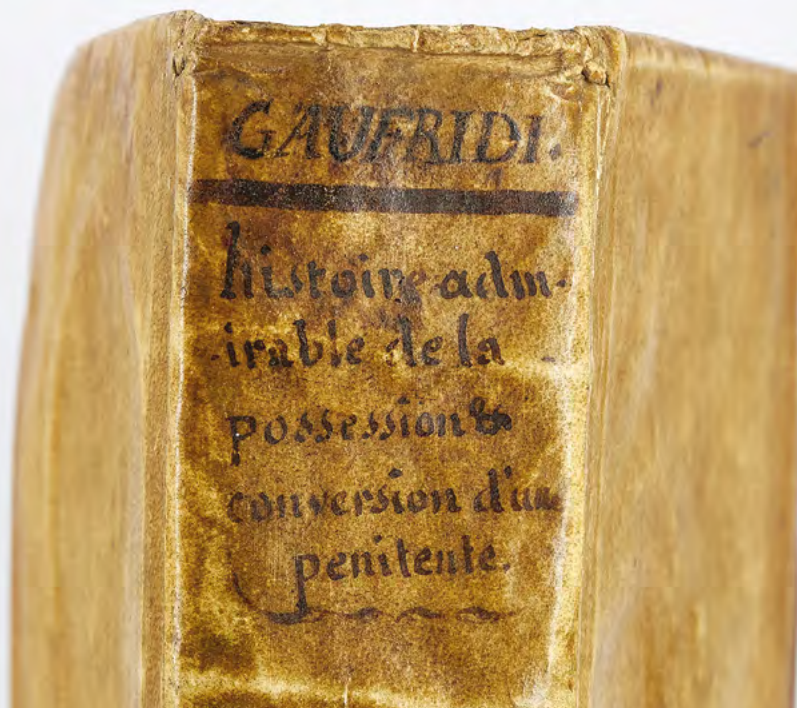 GAUFRIDI.
histoire adm-
irable de la
possession &
conversion d'une
penitente.